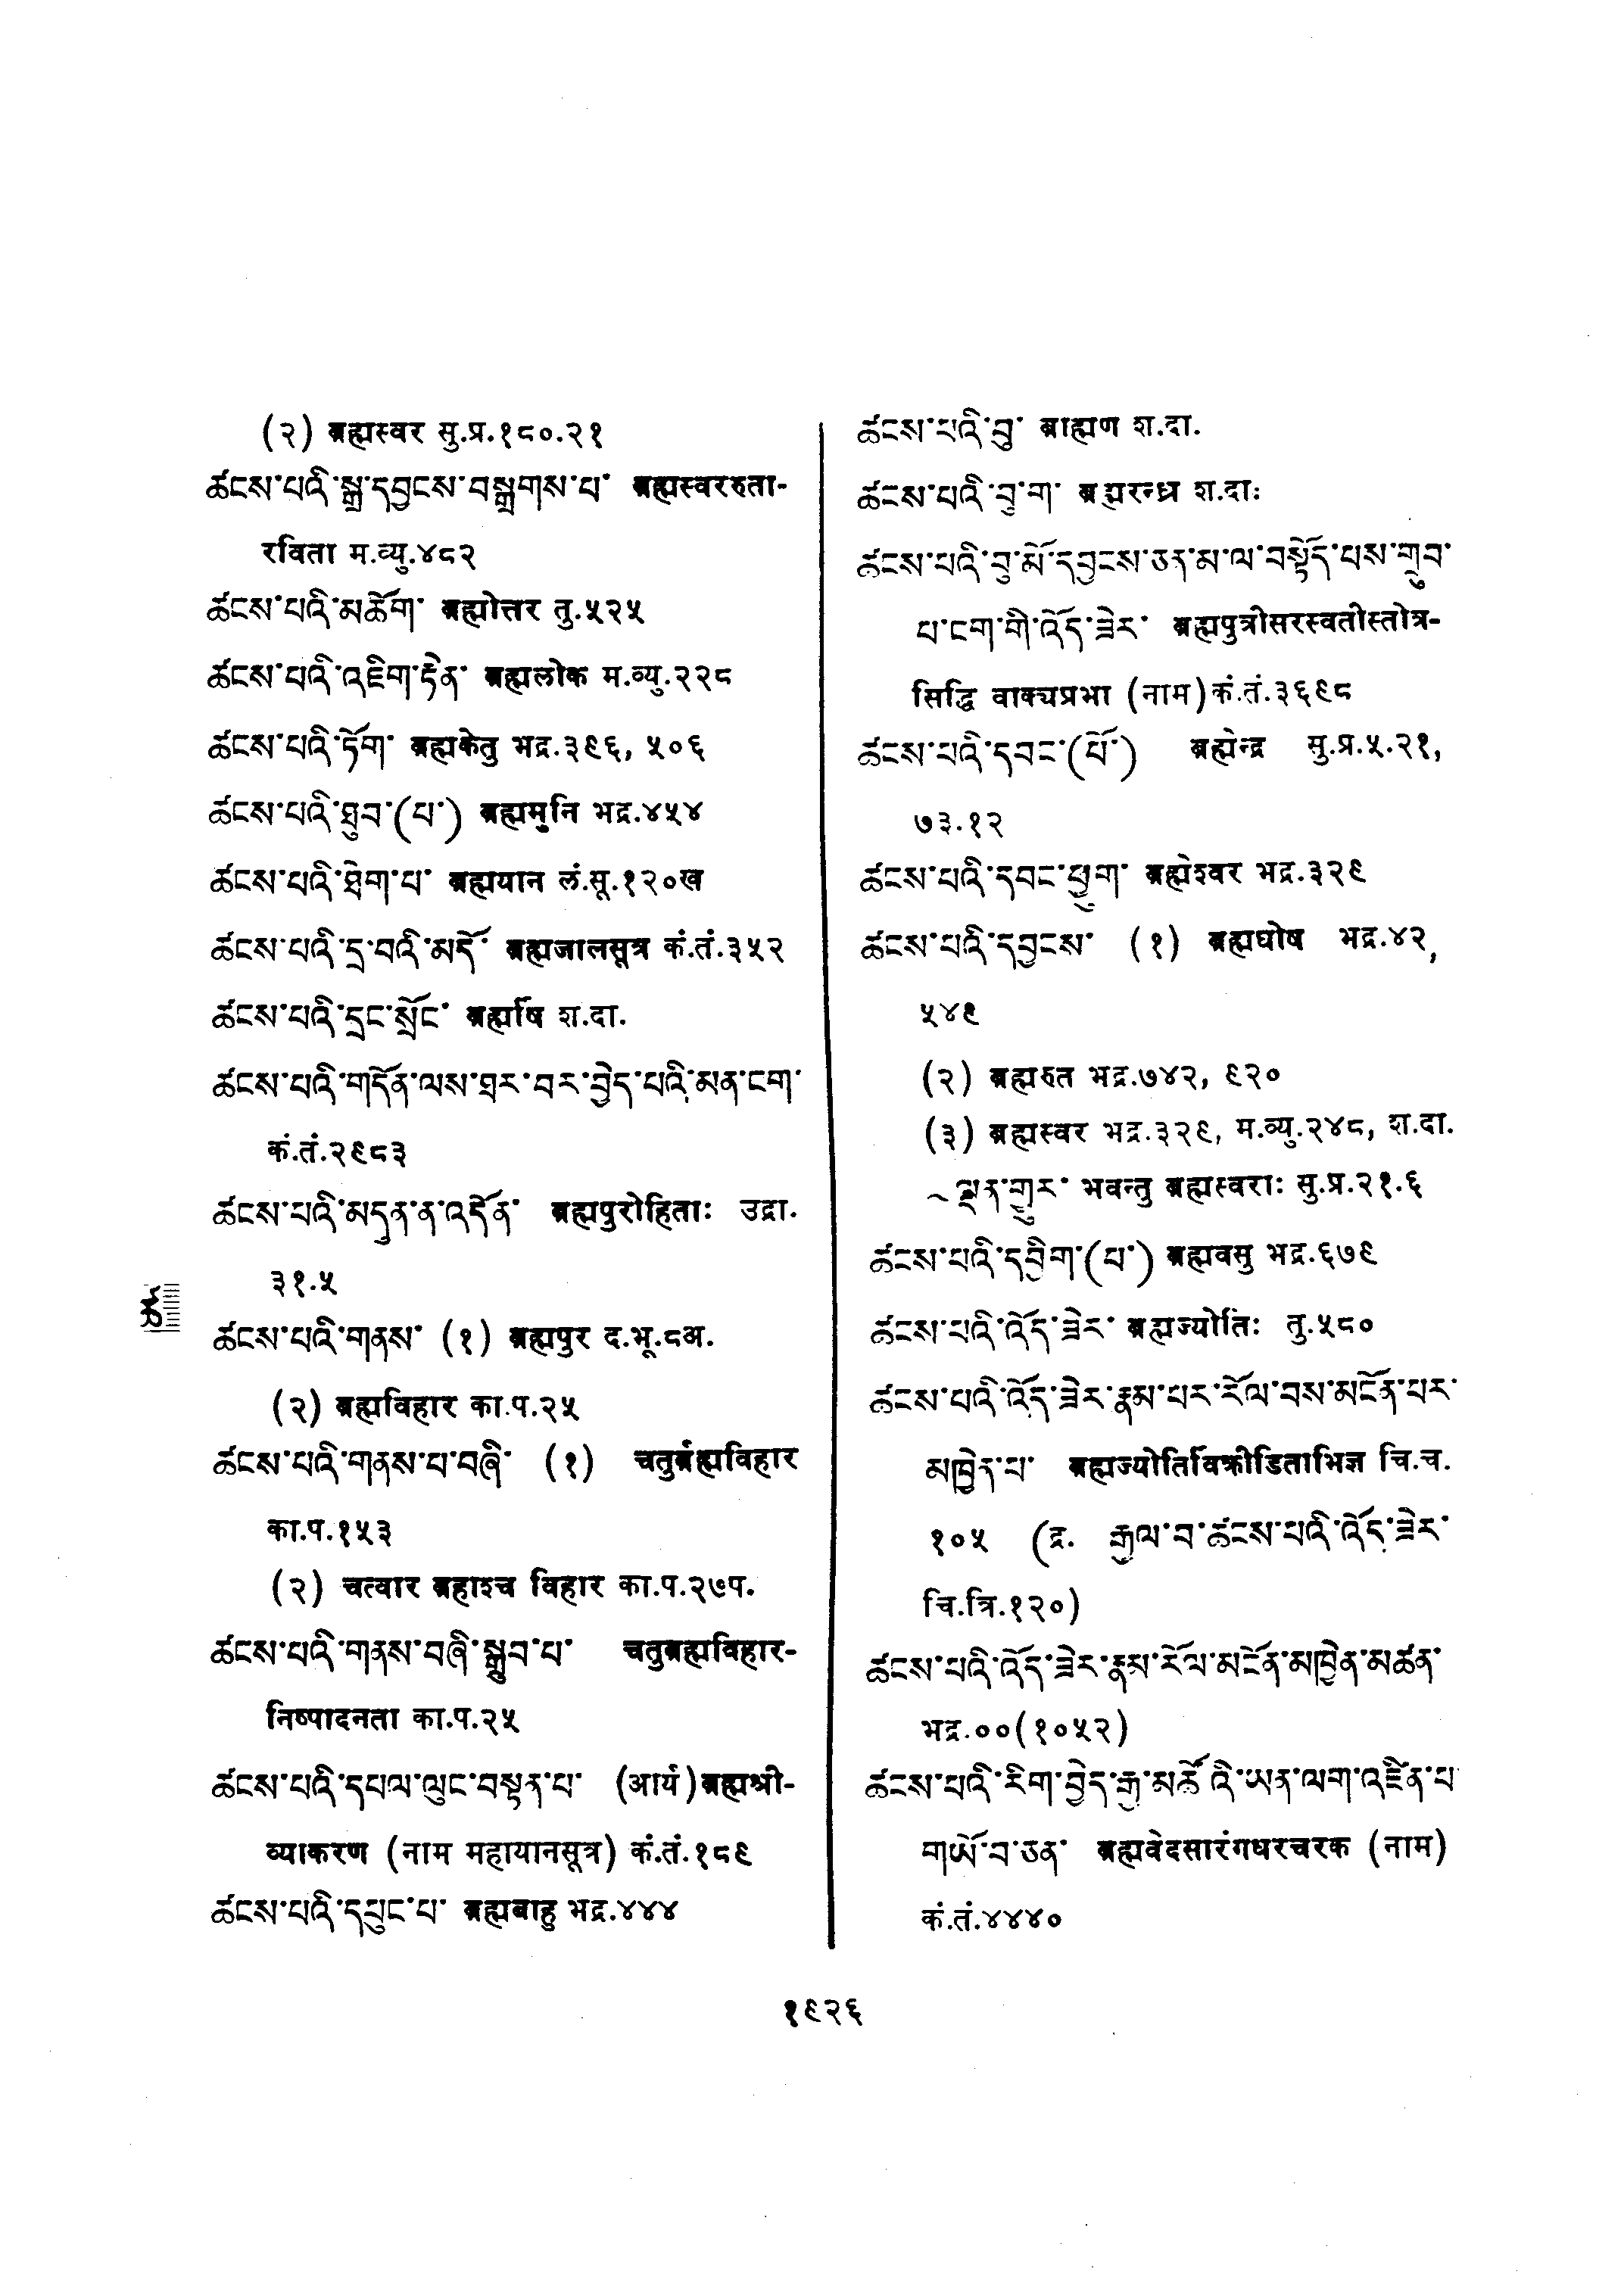 (२) ब्रह्मस्वर सु.प्र.१८०.२१
ཚངས་པའི་སྒྲ་དབྱངས་བསྒྲགས་པ་ ब्रह्मस्वररुता-
रविता म.व्यु.४८२
ཚངས་པའི་མཆོག་ ब्रह्मोत्तर तु.५२५
ཚངས་པའི་འཇིག་རྟེན་ ब्रह्मलोक म.व्यु.२२८
ཚངས་པའི་ཏོག་ ब्रह्मकेतु भद्र.३९६, ५०६
ཚངས་པའི་ཐུབ་(པ་) ब्रह्ममुनि भद्र.४५४
ཚངས་པའི་ཐེག་པ་ ब्रह्मयान लं.सू.१२०ख
ཚངས་པའི་དྲ་བའི་མདོ་ ब्रह्मजालसूत्र कं.तं.३५२
ཚངས་པའི་དྲང་སྲོང་ ब्रह्मर्षि श.दा.
ཚངས་པའི་གདོན་ལས་ཐར་བར་བྱེད་པའི་མན་ངག་
कं.तं.२९८३
ཚངས་པའི་མདུན་ན་འདོན་ ब्रह्मपुरोहिताः उद्रा.
३१.५
ཚངས་པའི་གནས་ (१) ब्रह्मपुर द.भू.८अ.
(२) ब्रह्मविहार का.प.२५
ཚངས་པའི་གནས་པ་བཞི་ (१) चतुर्ब्रह्मविहार
का.प.१५३
(२) चत्वार ब्रहाश्च विहार का.प.२७प.
ཚངས་པའི་གནས་བཞི་སྒྲུབ་པ་ चतुब्रह्मविहार-
निष्पादनता का.प.२५
ཚངས་པའི་དཔལ་ལུང་བསྟན་པ་ (आर्य)ब्रह्मश्री-
व्याकरण (नाम महायानसूत्र) कं.तं.१८९
ཚངས་པའི་དཔུང་པ་ ब्रह्मबाहु भद्र.४४४
ཚ
ཚངས་པའི་བུ་ ब्राह्मण श.दा.
ཚངས་པའི་བུ་ག་ ब्रह्मरन्ध्र श.दाः
ཚངས་པའི་བུ་མོ་དབྱངས་ཅན་མ་ལ་བསྟོད་པས་གྲུབ་
པ་ངག་གི་འོད་ཟེར་ ब्रह्मपुत्रीसरस्वतीस्तोत्र-
सिद्धि वाक्यप्रभा (नाम)कं.तं.३६९८
ཚངས་པའི་དབང་(པོ་) ब्रह्मेन्द्र सु.प्र.५.२१,
७३.१२
ཚངས་པའི་དབང་ཕྱུག་ ब्रह्मेश्वर भद्र.३२९
ཚངས་པའི་དབྱངས་ (१) ब्रह्मघोष भद्र.४२,
५४९
(२) ब्रह्मरुत भद्र.७४२, ९२०
(३) ब्रह्मस्वर भद्र.३२९, म.व्यु.२४८, श.दा.
~ལྡན་གྱུར་ भवन्तु ब्रह्मस्वराः सु.प्र.२१.६
ཚངས་པའི་དབྱིག་(པ་) ब्रह्मवसु भद्र.६७९
ཚངས་པའི་འོད་ཟེར་ ब्रह्मज्योतिः तु.५८०
ཚངས་པའི་འོད་ཟེར་རྣམ་པར་རོལ་བས་མངོན་པར་
མཁྱེན་པ་ ब्रह्मज्योतिर्विक्रीडिताभिज्ञ चि.च.
१०५ (द्र. རྒྱལ་བ་ཚངས་པའི་འོད་ཟེར་
चि.त्रि.१२०)
ཚངས་པའི་འོད་ཟེར་རྣམ་རོལ་མངོན་མཁྱེན་མཚན་
भद्र.००(१०५२)
ཚངས་པའི་རིག་བྱེད་རྒྱ་མཚོ་འི་ཡན་ལག་འཛིན་པ་
གཡོ་བ་ཅན་ ब्रह्मवेदसारंगधरचरक (नाम)
कं.तं.४४४०
१९२६